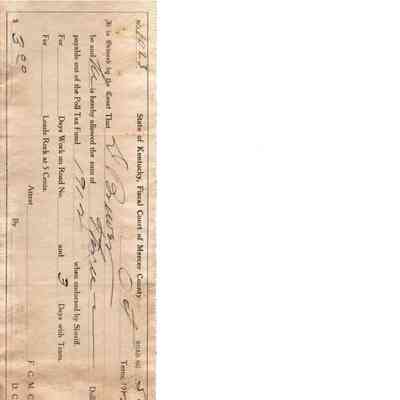 State of Kentucky, Fiscal Court of Mercer County
ROAD NO.
Term, 191
It is Ordered by the Court That
be and he is hereby allowed the sum of Three Doll
payable out of the Poll Tax Fund 1912 when endorsed by Sheriff.
For Days Work on Road No. and 3 Days with Team.
For Loads Rock at 5 Cents.
Attest F. C. M. C
$ 3.00 By D. C